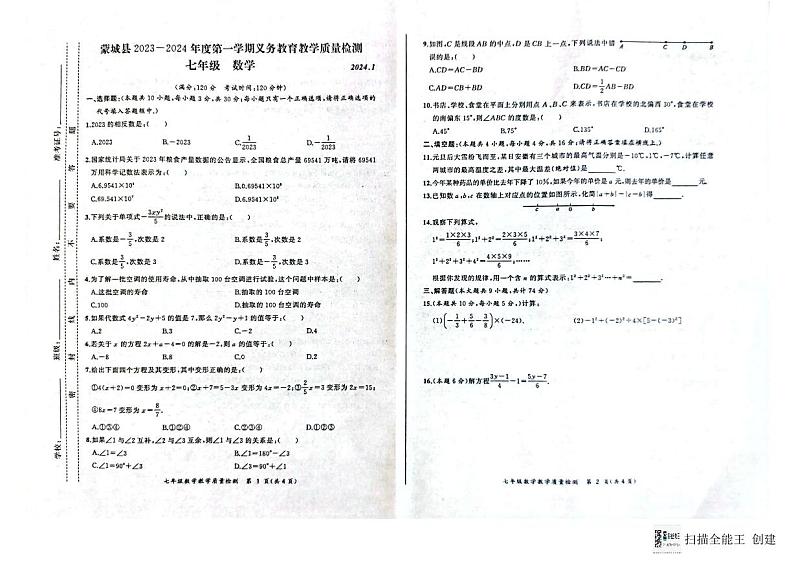 蒙城县2023-2024年度第一学期义务教育教学质量检测
七年级 数学
2024.1
(满分:120分 考试时间:120分钟)
一、选择题:(本题共10小题,每小题3分,共30分;每小题只有一个正确选项,请将正确选项的
代号填入答题框中.)
1.2023的相反数是:( )
A.2023 B.-2023 C.1/2023 D.-1/2023
2.国家统计局关于2023年粮食产量数据的公告显示,全国粮食总产量69541万吨,请将69541
万用科学记数法表示为:( )
A.6.9541×10⁴ B.0.69541×10⁸
C.69.541×10⁷ D.6.9541×10⁸
3.下列关于单项式-3xy²/5的说法中,正确的是:( )
A.系数是-3/5,次数是2 B.系数是3/5,次数是2
C.系数是3/5,次数是3 D.系数是-3/5,次数是3
4.为了解一批空调的使用寿命,从中抽取100台空调进行试验,这个问题中样本是:( )
A.这批空调的寿命 B.抽取的100台空调
C.100 D.抽取的100台空调的寿命
5.如果代数式4y²-2y+5的值是7,那么2y²-y+1的值等于:( )
A.2 B.3 C.-2 D.4
6.若关于x的方程2x+a-4=0的解是-2,则a的值等于:( )
A.-8 B.8 C.0 D.2
7.给出下面四个方程及其变形,其中变形正确的是:( )
①4(x+2)=0变形为x+2=0;②x+7=5-3x变形为4x=-2;③2/5x=3变形为2x=15;
④8x=7变形为x=8/7.
A.①③④ B.①②④ C.②③④ D.①②③
8.如果∠1与∠2互补,∠2与∠3互余,则∠1与∠3的关系是:( )
A.∠1=∠3 B.∠1=180°-∠3
C.∠1=90°+∠3 D.∠3=90°+∠1
七年级数学教学质量检测 第1页(共4页)
学校:
班级:
姓名:
准考证号:
密 封 线 内 不 要 答 题
9.如图,C是线段AB的中点,D是CB上一点,下列说法中错
误的是:( )
A.CD=AC-BD B.BD=AC-CD
C.AD=CB+BD D.CD=1/2AB-BD
10.书店,学校,食堂在平面上分别用点A,B,C来表示,书店在学校的北偏西30°,食堂在学校
的南偏东15°,则∠ABC的度数是:( )
A.45° B.75° C.135° D.165°
二、填空题:(本题共4小题,每小题4分,共16分;请将正确答案填在横线上.)
11.元旦后大雪纷飞而至,某日安徽有三个城市的最高气温分别是-10℃,1℃,-7℃,计算任意
两城市的最高温度之差,其中最大温差(绝对值)是 ℃.
12.今年某种药品的单价比去年下降了10%,如果今年的单价是a元,则去年的单价是 元.
13.已知数a,b,c在数轴上对应点的位置如图所示,化简|a+b|-|c-b|得 .
c a 0 b
14.观察下列算式,
1²=1×2×3/6;1²+2²=2×3×5/6;1²+2²+3²=3×4×7/6;
1²+2²+3²+4²=4×5×9/6;……
根据你发现的规律,用一个含n的算式表示:1²+2²+3²…+n²= .
三、解答题(本大题共9小题,共计74分)
15.(本题共10分,每小题5分)计算:
(1)(-1/3+5/6-3/8)×(-24). (2)-1⁴+(-2)³÷4×[5-(-3)²]
16.(本题6分)解方程3y-1/4-1=5y-7/6.
七年级数学教学质量检测 第2页(共4页)
扫描全能王 创建